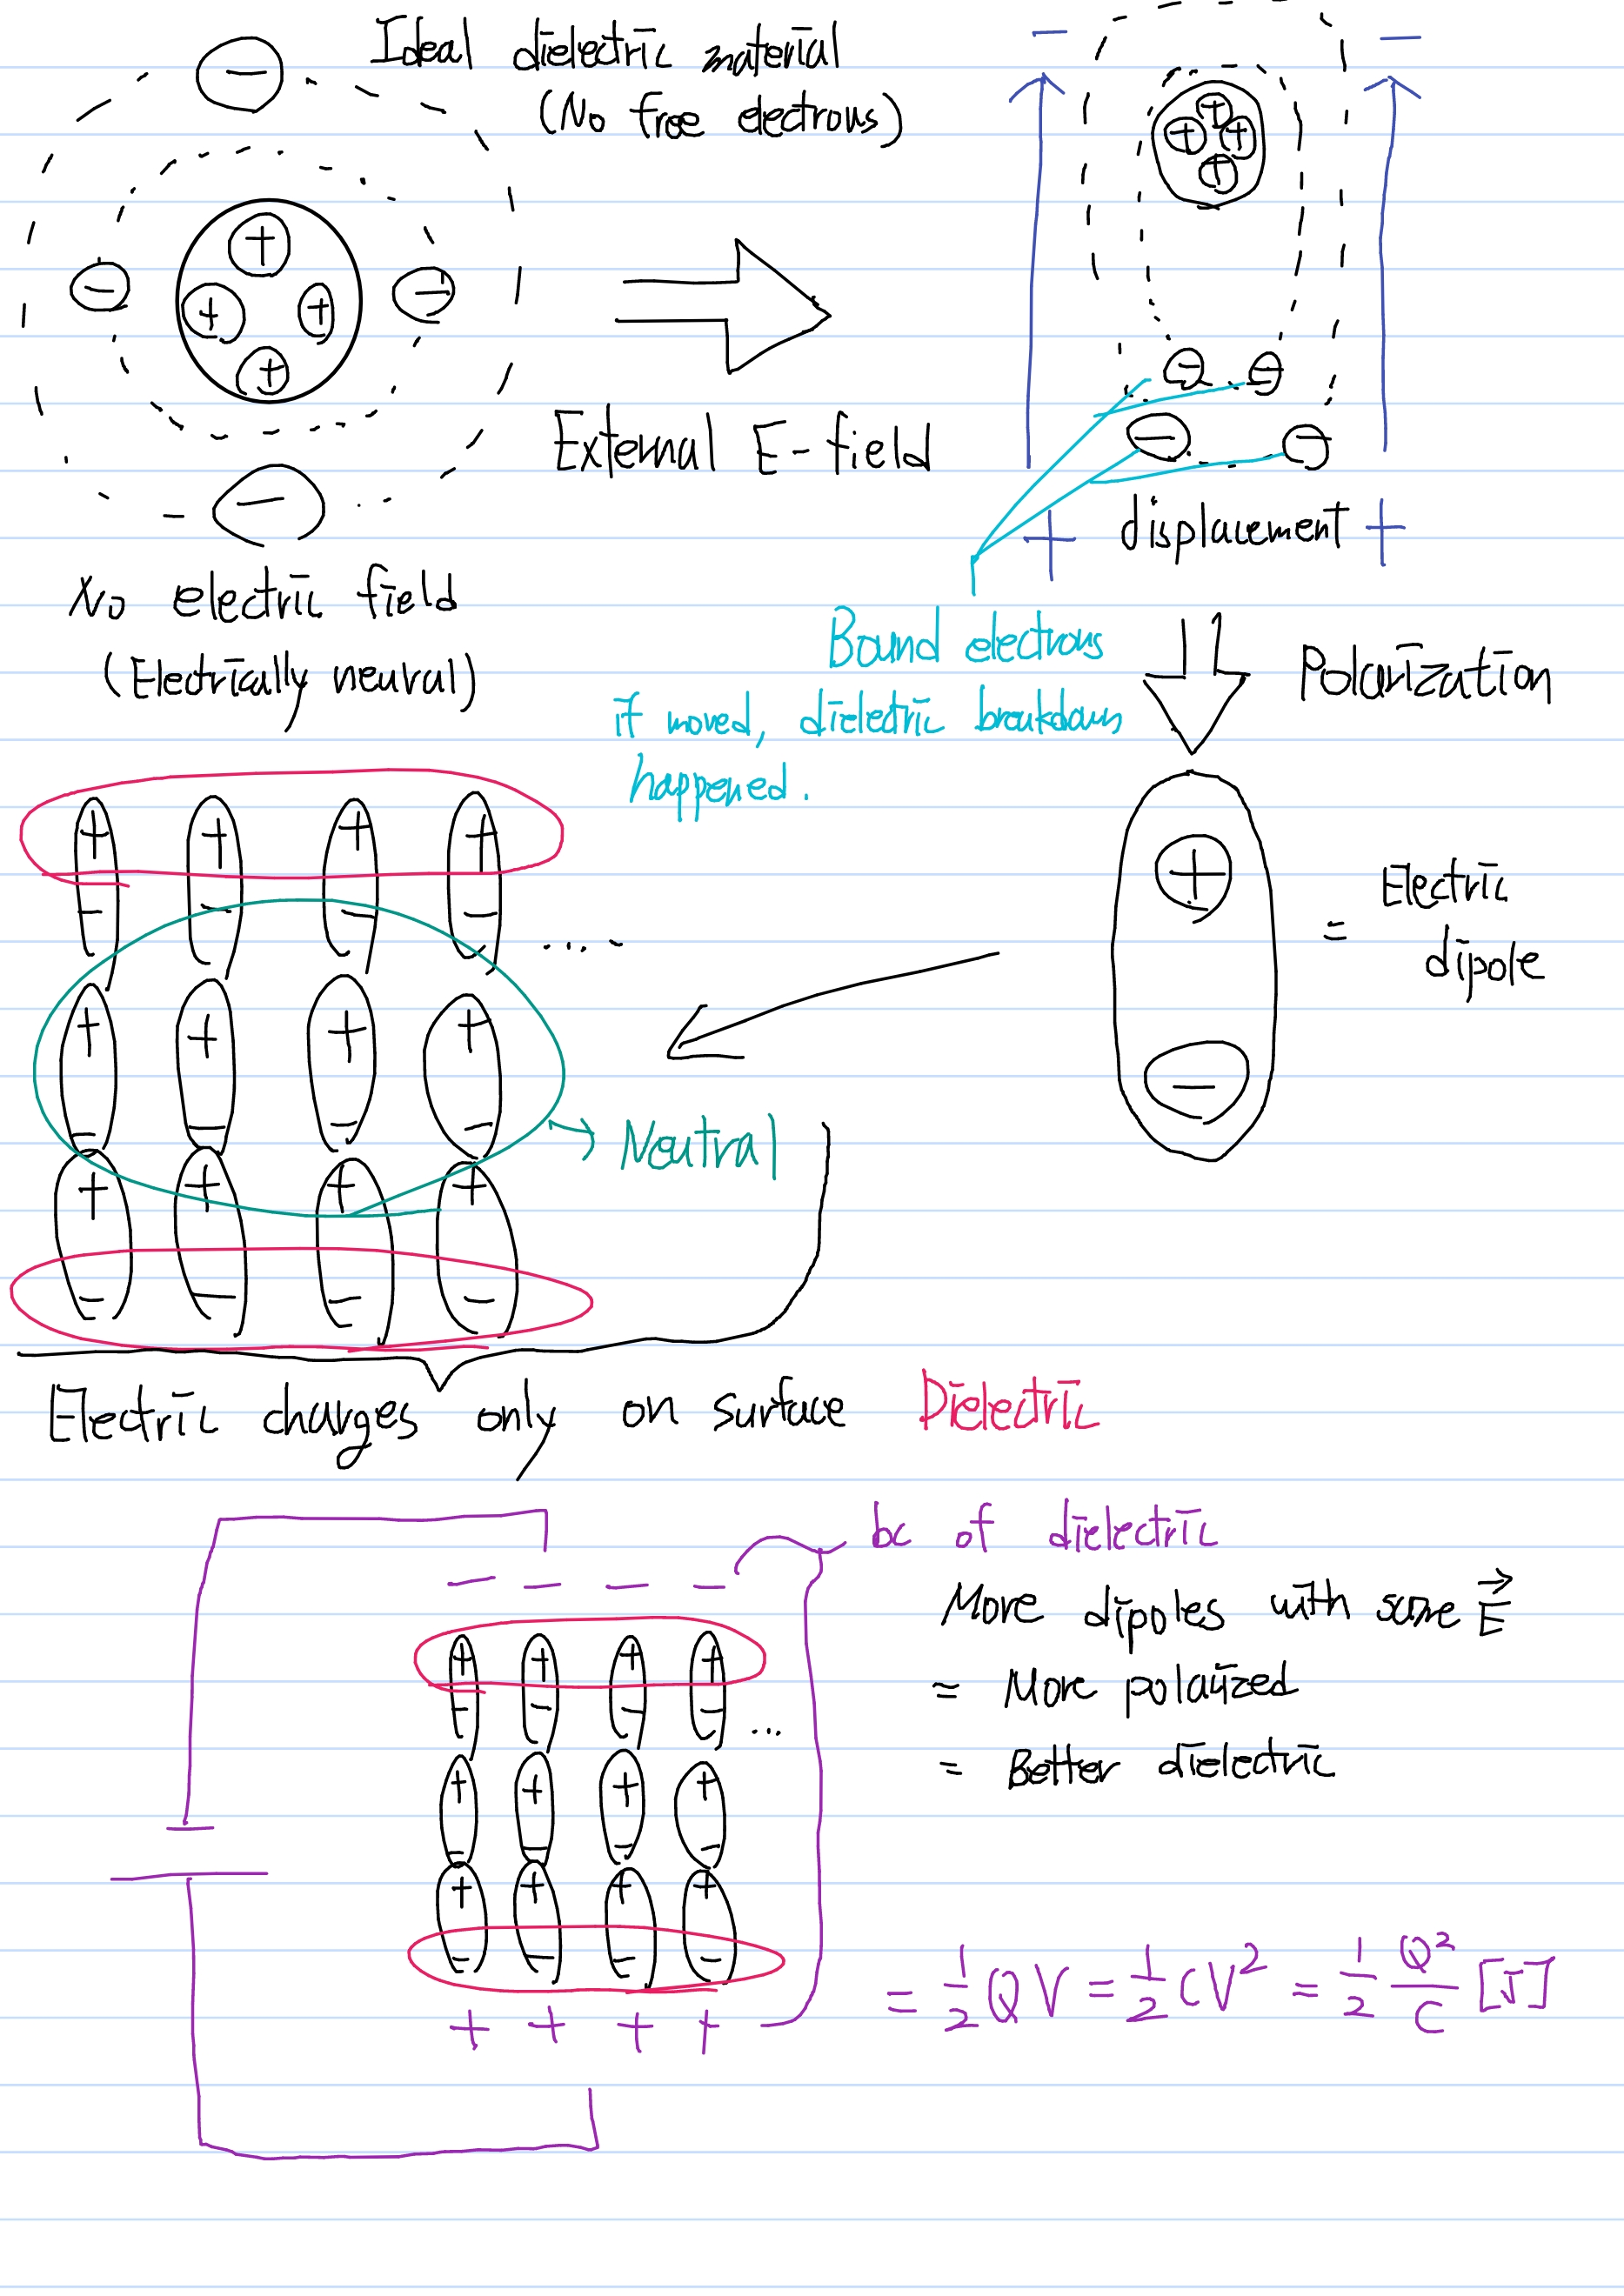 Ideal dielectric material
(No free electrons)
External E-field
No electric field
(Electrically neural)
displacement
Bound electrons
if moved, dielectric breakdown
happened.
Polarization
= Electric
dipole
....-
→ Neutral
Electric charges only on surface Dielectric
bc of dielectric
More dipoles with same E⃗
= More polarized
= Better dielectric
...
= 1/2 QV = 1/2 CV² = 1/2 Q²/C [J]